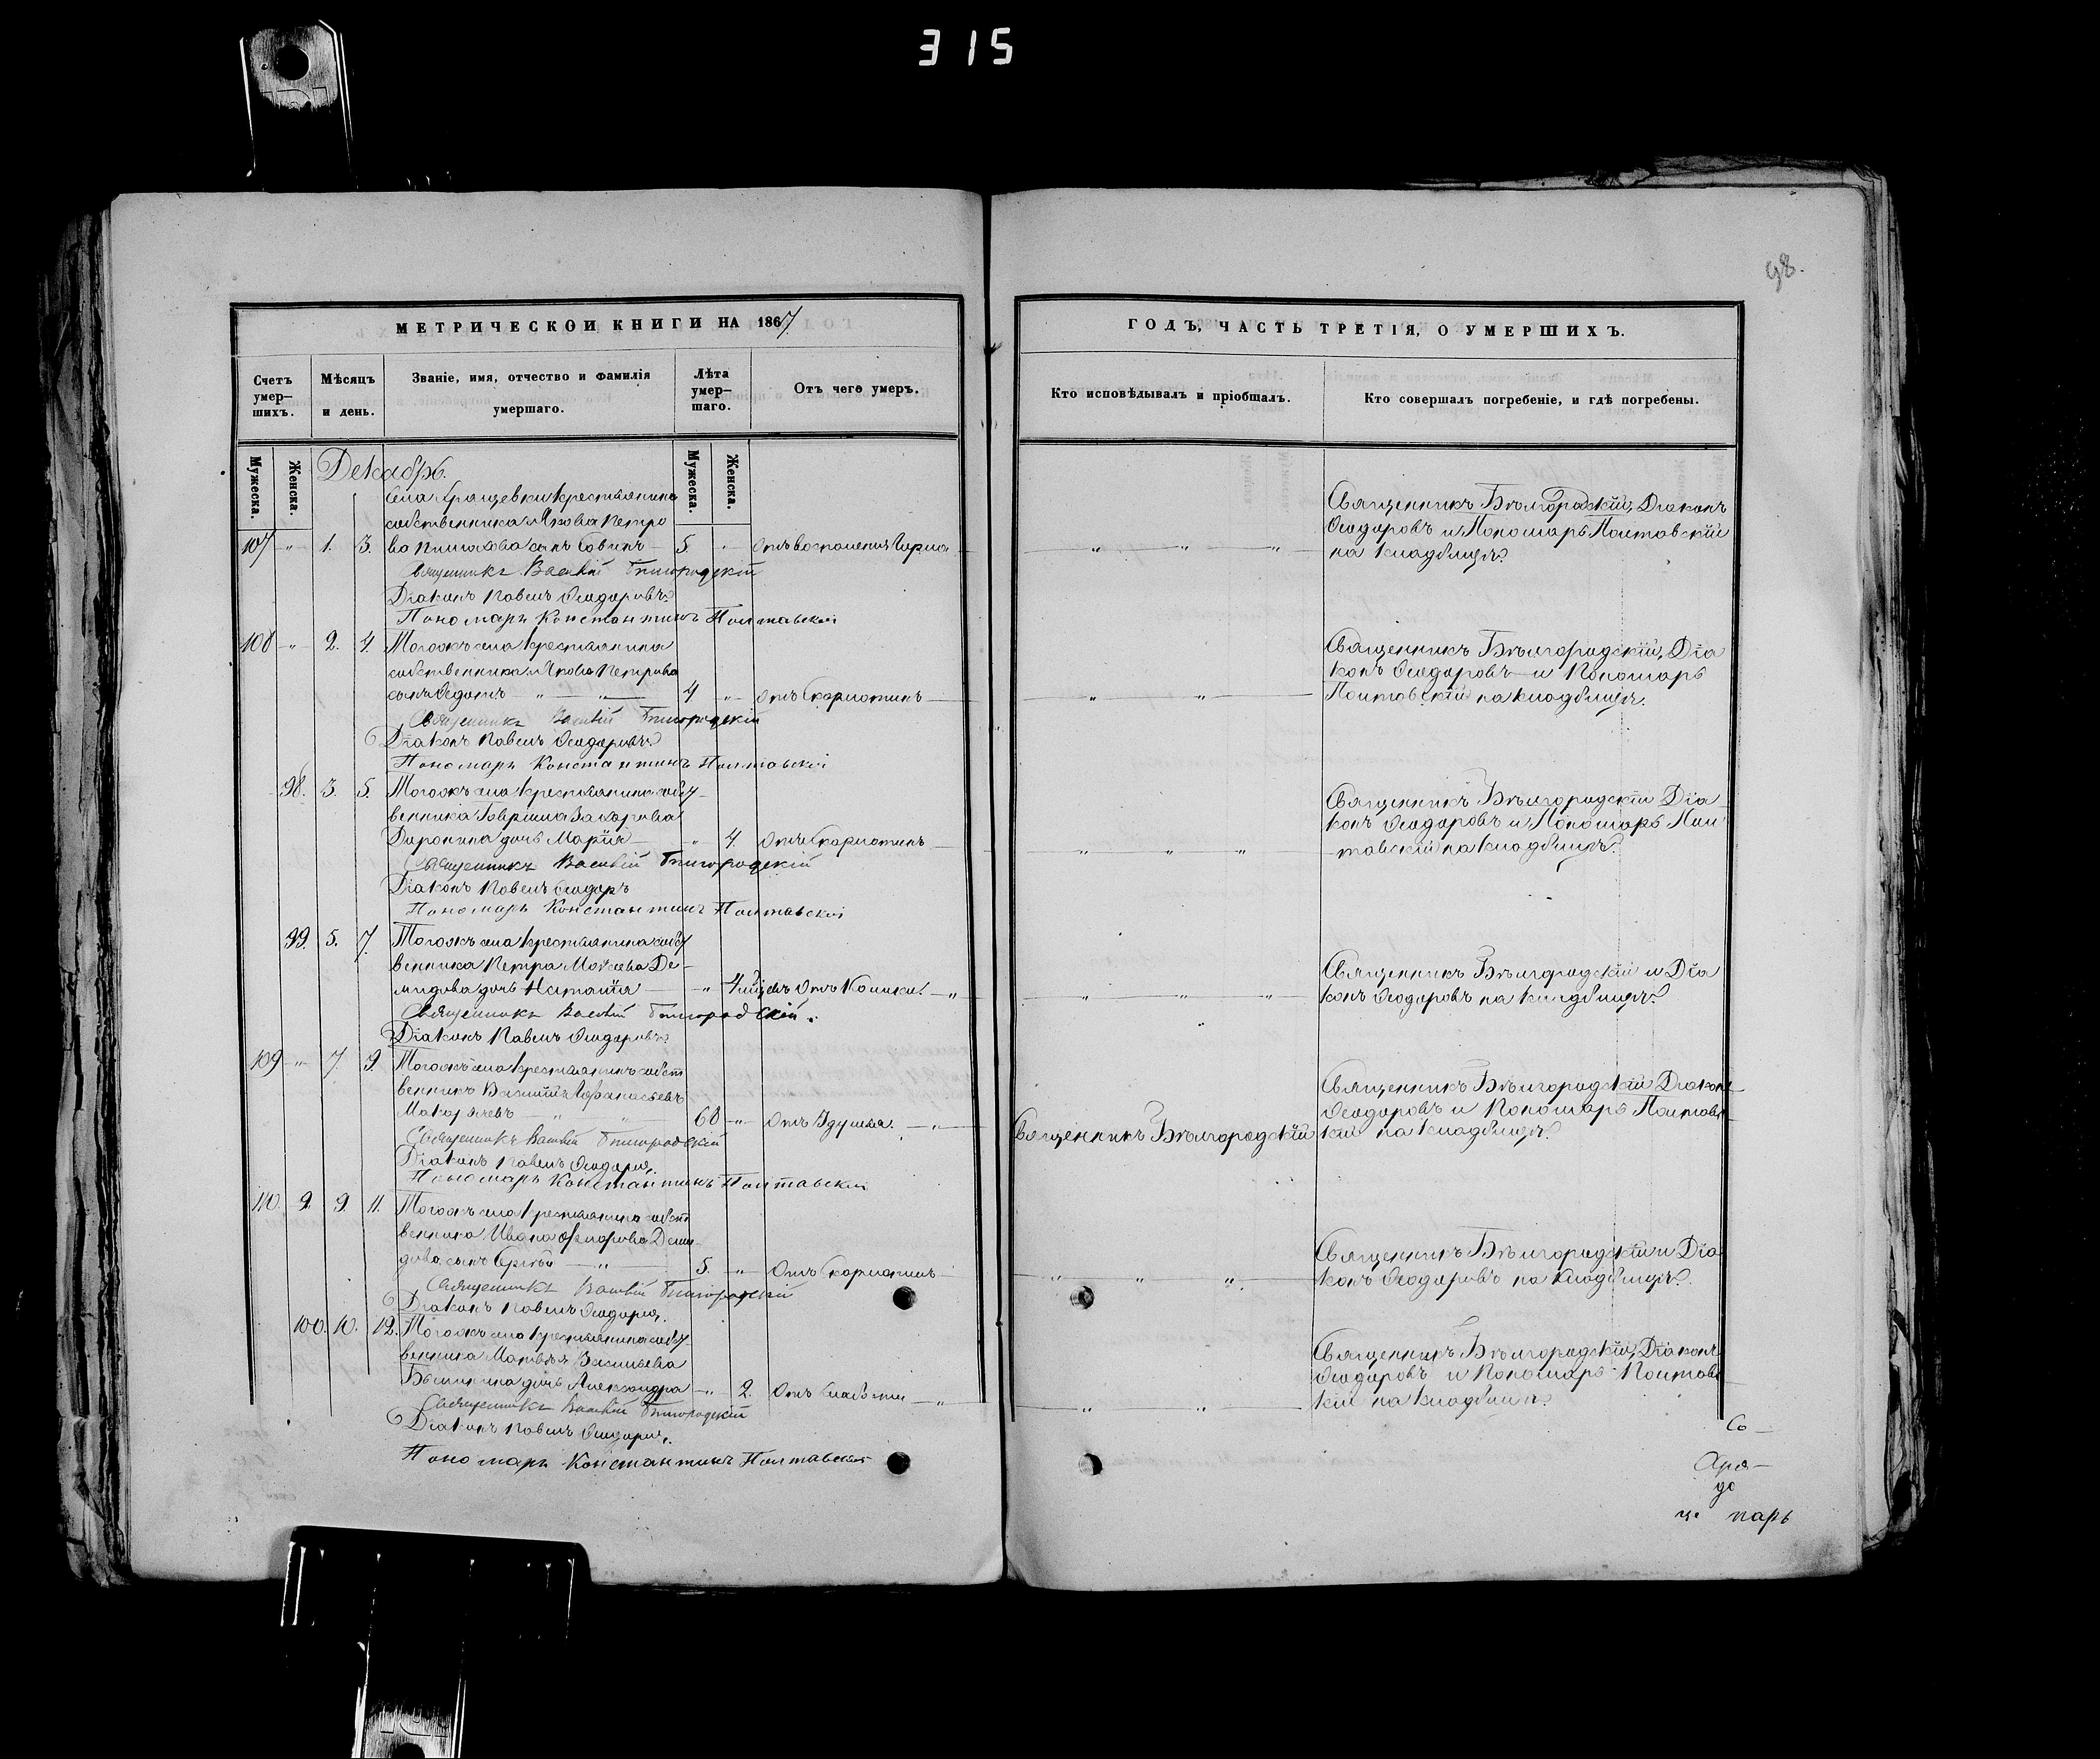 315
98.
МЕТРИЧЕСКОЙ КНИГИ НА 1867
ГОДЪ, ЧАСТЬ ТРЕТІЯ, О УМЕРШИХЪ.
Счетъ умер-шихъ.
Мѣсяцъ и день.
Званіе, имя, отчество и фамилія умершаго.
Лѣта умер-шаго.
Отъ чего умеръ.
Кто исповѣдывалъ и пріобщалъ.
Кто совершалъ погребеніе, и гдѣ погребены.
Мужеска.
Женска.
Мужеска.
Женска.
Декабрь.
Села крестьянина
собственника Якова Петро
107 " 1. 3. ва сынъ Савинъ 5 " Отъ воспаленія
Священникъ Василій Бѣлгородскій
Діаконъ Павелъ Ѳеодоровъ
Пономарь Константинъ Полтавскій
Священникъ Бѣлгородскій, Діаконъ
Ѳеодоровъ и Пономарь Полтавскій
на кладбищѣ
108 " 2. 4. Тогожъ села крестьянина
собственника Якова Петрова
сынъ Федотъ " " 4 " Отъ скарлатинъ
Священникъ Василій Бѣлгородскій
Діаконъ Павелъ Ѳеодоровъ
Пономарь Константинъ Полтавскій
Священникъ Бѣлгородскій, Діа
конъ Ѳеодоровъ и Пономарь
Полтавскій на кладбищѣ.
98. 3. 5. Тогожъ села крестьянина
венника Гавріила Захарова
Доронина дочь Марія " 4. Отъ скарлатинъ
Священникъ Василій Бѣлгородскій
Діаконъ Павелъ Ѳеодоръ
Пономарь Константинъ Полтавскій
Священникъ Бѣлгородскій Діа
конъ Ѳеодоровъ и Пономарь Пол
тавскій на кладбищѣ
99. 5. 7. Тогожъ села крестьянина
венника Петра Моѵсеева Де-
мидова дочь Наталія " Отъ
Священникъ Василій Бѣлгородскій.
Діаконъ Павелъ Ѳеодоровъ
Священникъ Бѣлгородскій и Діа
конъ Ѳеодоровъ на кладбищѣ
109 " 7. 9. Тогожъ села крестьянинъ собст
венникъ Василій Афанасьевъ
60 " Отъ Удушья. "
Священникъ Василій Бѣлгородскій
Діаконъ Павелъ Ѳеодоровъ.
Пономарь Константинъ Полтавскій
Священникъ Бѣлгородскій
Священникъ Бѣлгородскій Діаконъ
Ѳеодоровъ и Пономарь Полтавс
кій на кладбищѣ.
110. 9. 9. 11. Тогожъ села крестьянина собст
венника Ивана Деми-
дова сынъ Сергѣй " 5. " Отъ скарлатинъ
Священникъ Василій Бѣлгородскій
Діаконъ Павелъ Ѳеодоровъ.
Священникъ Бѣлгородскій и Діа
конъ Ѳеодоровъ на кладбищѣ.
100. 10. 12. Тогожъ села крестьянина
венника Матвѣя Васильева
дочь Александра " 2. Отъ слабости "
Священникъ Василій Бѣлгородскій
Діаконъ Павелъ Ѳеодоровъ.
Пономарь Константинъ Полтавскій
Священникъ Бѣлгородскій, Діаконъ
Ѳеодоровъ и Пономарь Полтавс
кій на кладбищѣ.